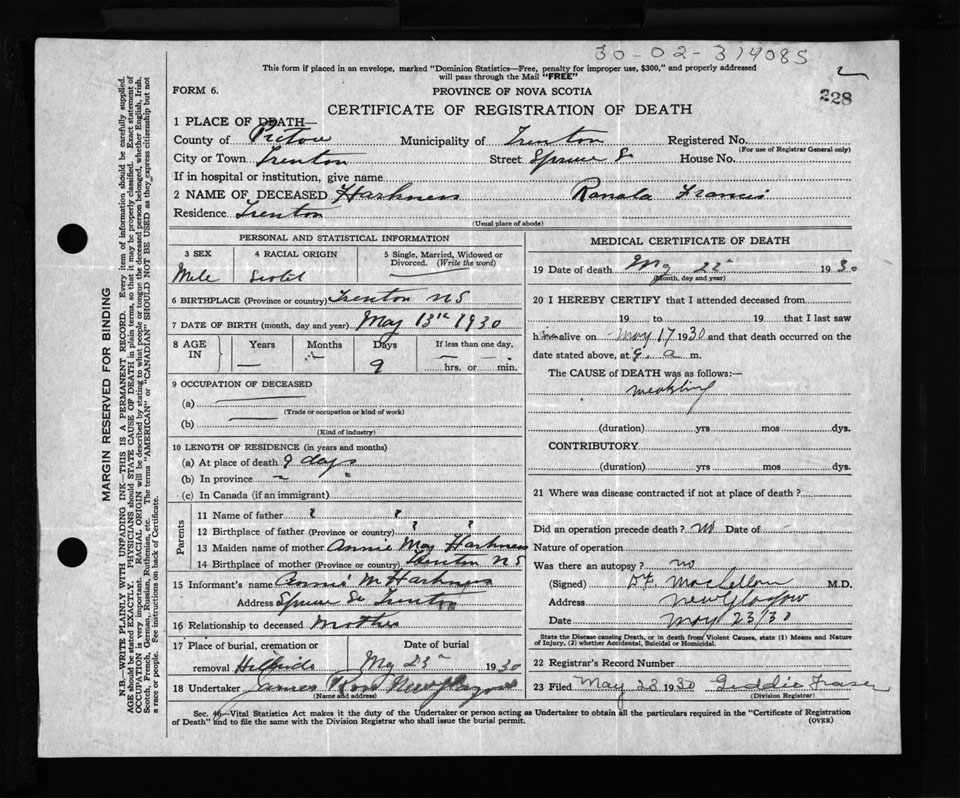 30-02-314085
This form if placed in an envelope, marked "Dominion Statistics—Free, penalty for improper use, $300," and properly addressed
will pass through the Mail "FREE"
228
FORM 6.
PROVINCE OF NOVA SCOTIA
CERTIFICATE OF REGISTRATION OF DEATH
1 PLACE OF DEATH—
County of Pictou Municipality of Trenton Registered No.
(For use of Registrar General only)
City or Town Trenton Street Spruce St House No.
If in hospital or institution, give name
2 NAME OF DECEASED Harkness Ronald Francis
Residence Trenton
(Usual place of abode)
PERSONAL AND STATISTICAL INFORMATION
3 SEX 4 RACIAL ORIGIN 5 Single, Married, Widowed or Divorced. (Write the word)
Male Scotch
6 BIRTHPLACE (Province or country) Trenton NS
7 DATE OF BIRTH (month, day and year) May 13th 1930
8 AGE IN Years Months Days If less than one day,
— 9 hrs. or min.
9 OCCUPATION OF DECEASED
(a)
(Trade or occupation or kind of work)
(b)
(Kind of industry)
10 LENGTH OF RESIDENCE (in years and months)
(a) At place of death 9 days
(b) In province " "
(c) In Canada (if an immigrant)
Parents
11 Name of father ? ?
12 Birthplace of father (Province or country) ? ?
13 Maiden name of mother Annie May Harkness
14 Birthplace of mother (Province or country) Trenton NS
15 Informant's name Annie M. Harkness
Address Spruce St Trenton
16 Relationship to deceased Mother
17 Place of burial, cremation or Date of burial
removal Hillside My 23 1930
18 Undertaker James Ross New Glasgow
(Name and address)
MEDICAL CERTIFICATE OF DEATH
19 Date of death My 22 1930
(Month, day and year)
20 I HEREBY CERTIFY that I attended deceased from
19 to 19 that I last saw
him alive on May 17 1930 and that death occurred on the
date stated above, at 9. a m.
The CAUSE of DEATH was as follows:—
weakling
(duration) yrs mos dys.
CONTRIBUTORY
(duration) yrs. mos dys.
21 Where was disease contracted if not at place of death?
Did an operation precede death? no Date of
Nature of operation
Was there an autopsy? no
(Signed) MacLellan M.D.
Address New Glasgow
Date May 23/30
State the Disease causing Death, or in death from Violent Causes, state (1) Means and Nature
of Injury, (2) whether Accidental, Suicidal or Homicidal.
22 Registrar's Record Number
23 Filed May 23 1930 Geddie Fraser
(Division Registrar)
Sec. 46—Vital Statistics Act makes it the duty of the Undertaker or person acting as Undertaker to obtain all the particulars required in the "Certificate of Registration
of Death" and to file the same with the Division Registrar who shall issue the burial permit.
(OVER)
MARGIN RESERVED FOR BINDING
N.B.—WRITE PLAINLY WITH UNFADING INK—THIS IS A PERMANENT RECORD. Every item of information should be carefully supplied.
AGE should be stated EXACTLY. PHYSICIANS should STATE CAUSE OF DEATH in plain terms, so that it may be properly classified. Exact statement of
OCCUPATION is very important. RACIAL ORIGIN will be described by stating to what people or tongue the deceased person belonged, whether English, Irish,
Scotch, French, German, Russian, Ruthenian, etc. The terms "AMERICAN" or "CANADIAN" SHOULD NOT BE USED as they express citizenship but not
a race or people. See instructions on back of Certificate.